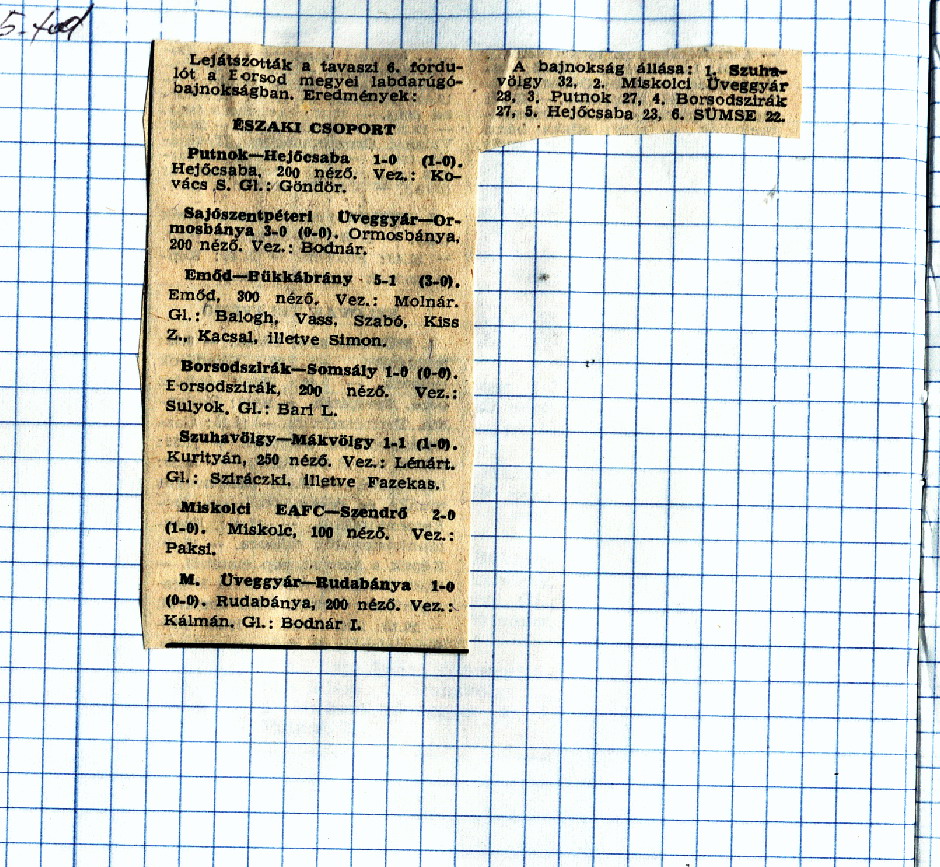 5. ford
Lejátszották a tavaszi 6. fordu-
lót a Eorsod megyei labdarúgó-
bajnokságban. Eredmények:
ÉSZAKI CSOPORT
Putnok—Hejőcsaba 1-0 (1-0).
Hejőcsaba, 200 néző. Vez.: Ko-
vács S. Gl.: Göndör.
Sajószentpéteri Üveggyár—Or-
mosbánya 3-0 (0-0). Ormosbánya,
200 néző. Vez.: Bodnár.
Emőd—Bükkábrány 5-1 (3-0).
Emőd, 300 néző. Vez.: Molnár.
Gl.: Balogh, Vass, Szabó, Kiss
Z., Kacsal, illetve Simon.
Borsodszirák—Somsály 1-0 (0-0).
Eorsodszirák, 200 néző. Vez.:
Sulyok. Gl.: Bari L.
Szuhavölgy—Mákvölgy 1-1 (1-0).
Kurityán, 250 néző. Vez.: Lénárt.
Gl.: Sziráczki, illetve Fazekas.
Miskolci EAFC—Szendrő 2-0
(1-0). Miskolc, 100 néző. Vez.:
Paksi.
M. Üveggyár—Rudabánya 1-0
(0-0). Rudabánya, 200 néző. Vez.:
Kálmán. Gl.: Bodnár I.
A bajnokság állása: 1. Szuha-
völgy 32, 2. Miskolci Üveggyár
28, 3. Putnok 27, 4. Borsodszirák
27, 5. Hejőcsaba 23, 6. SÜMSE 22.